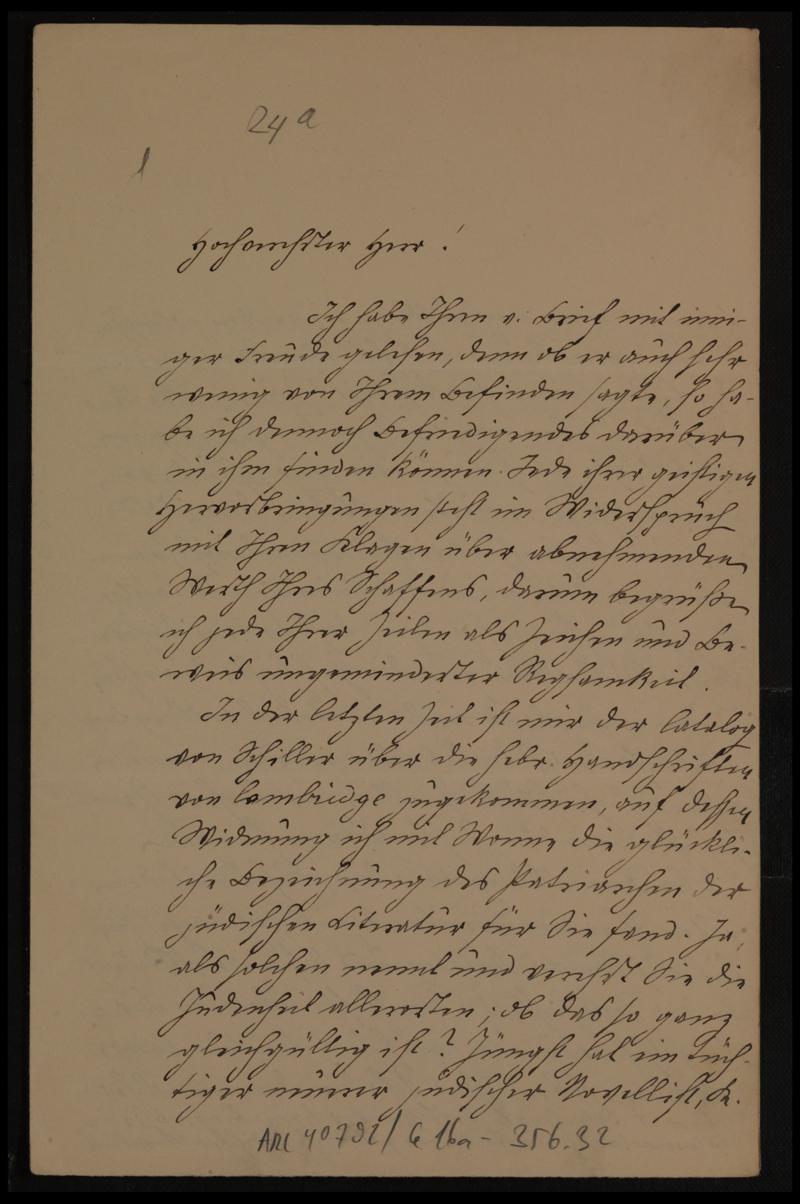 24a
1
Hochverehrter Herr!
Ich habe Ihren v. Brief mit inni-
ger Freude gelesen, denn ob er auch sehr
wenig von Ihrem Befinden sagte, so ha-
be ich dennoch Befriedigendes darüber
in ihm finden können. Jede ihrer geistigen
Hervorbringungen steht im Widerspruch
mit Ihren Klagen über abnehmenden
Werth Ihres Schaffens, darum begrüße
ich jede Ihrer Zeilen als Zeichen und Be-
weis ungeminderter Regsamkeit.
In der letzten Zeit ist mir der Catalog
von Schiller über die hebr. Handschriften
von Cambridge zugekommen, auf dessen
Widmung ich mit Wonne die glückli-
che Bezeichnung des Patriarchen der
jüdischen Literatur für Sie fand. Ja,
als solchen nennt und verehrt Sie die
Judenheit allerorten; ob das so ganz
gleichgültig ist? Jüngst hat ein tüch-
tiger neuerer jüdischer Novellist, K.
ARC 4o792/G16a-356.32